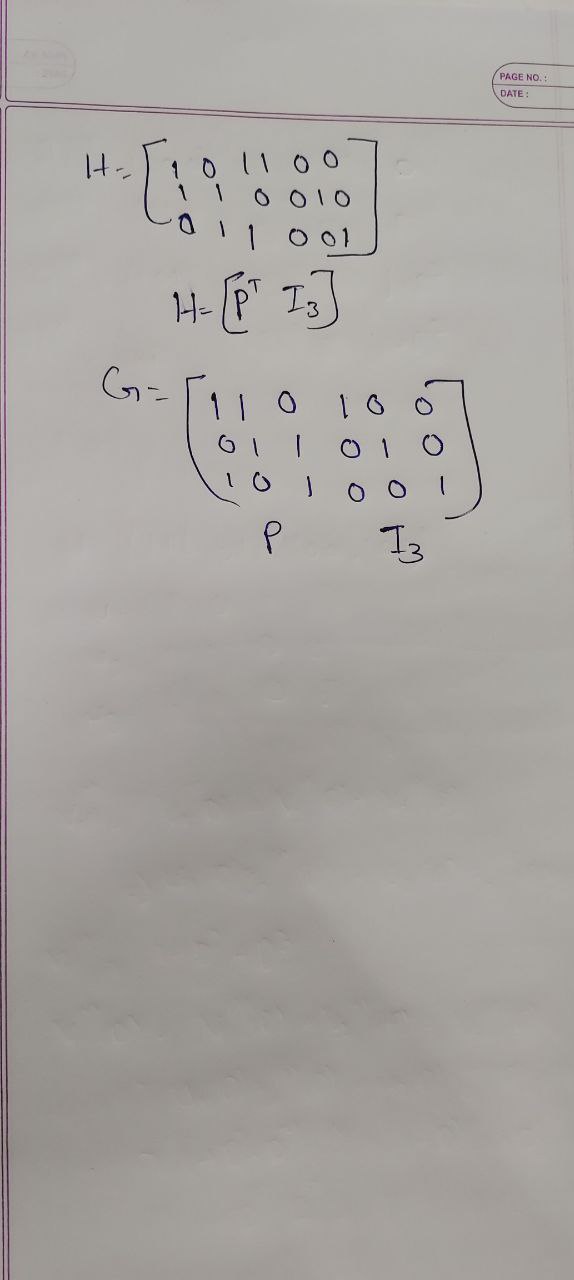 PAGE NO.:
DATE:
H = [ 1 0 1 1 0 0
1 1 0 0 1 0
0 1 1 0 0 1 ]
H = [Pᵀ I₃]
G = [ 1 1 0 1 0 0
0 1 1 0 1 0
1 0 1 0 0 1 ]
P I₃